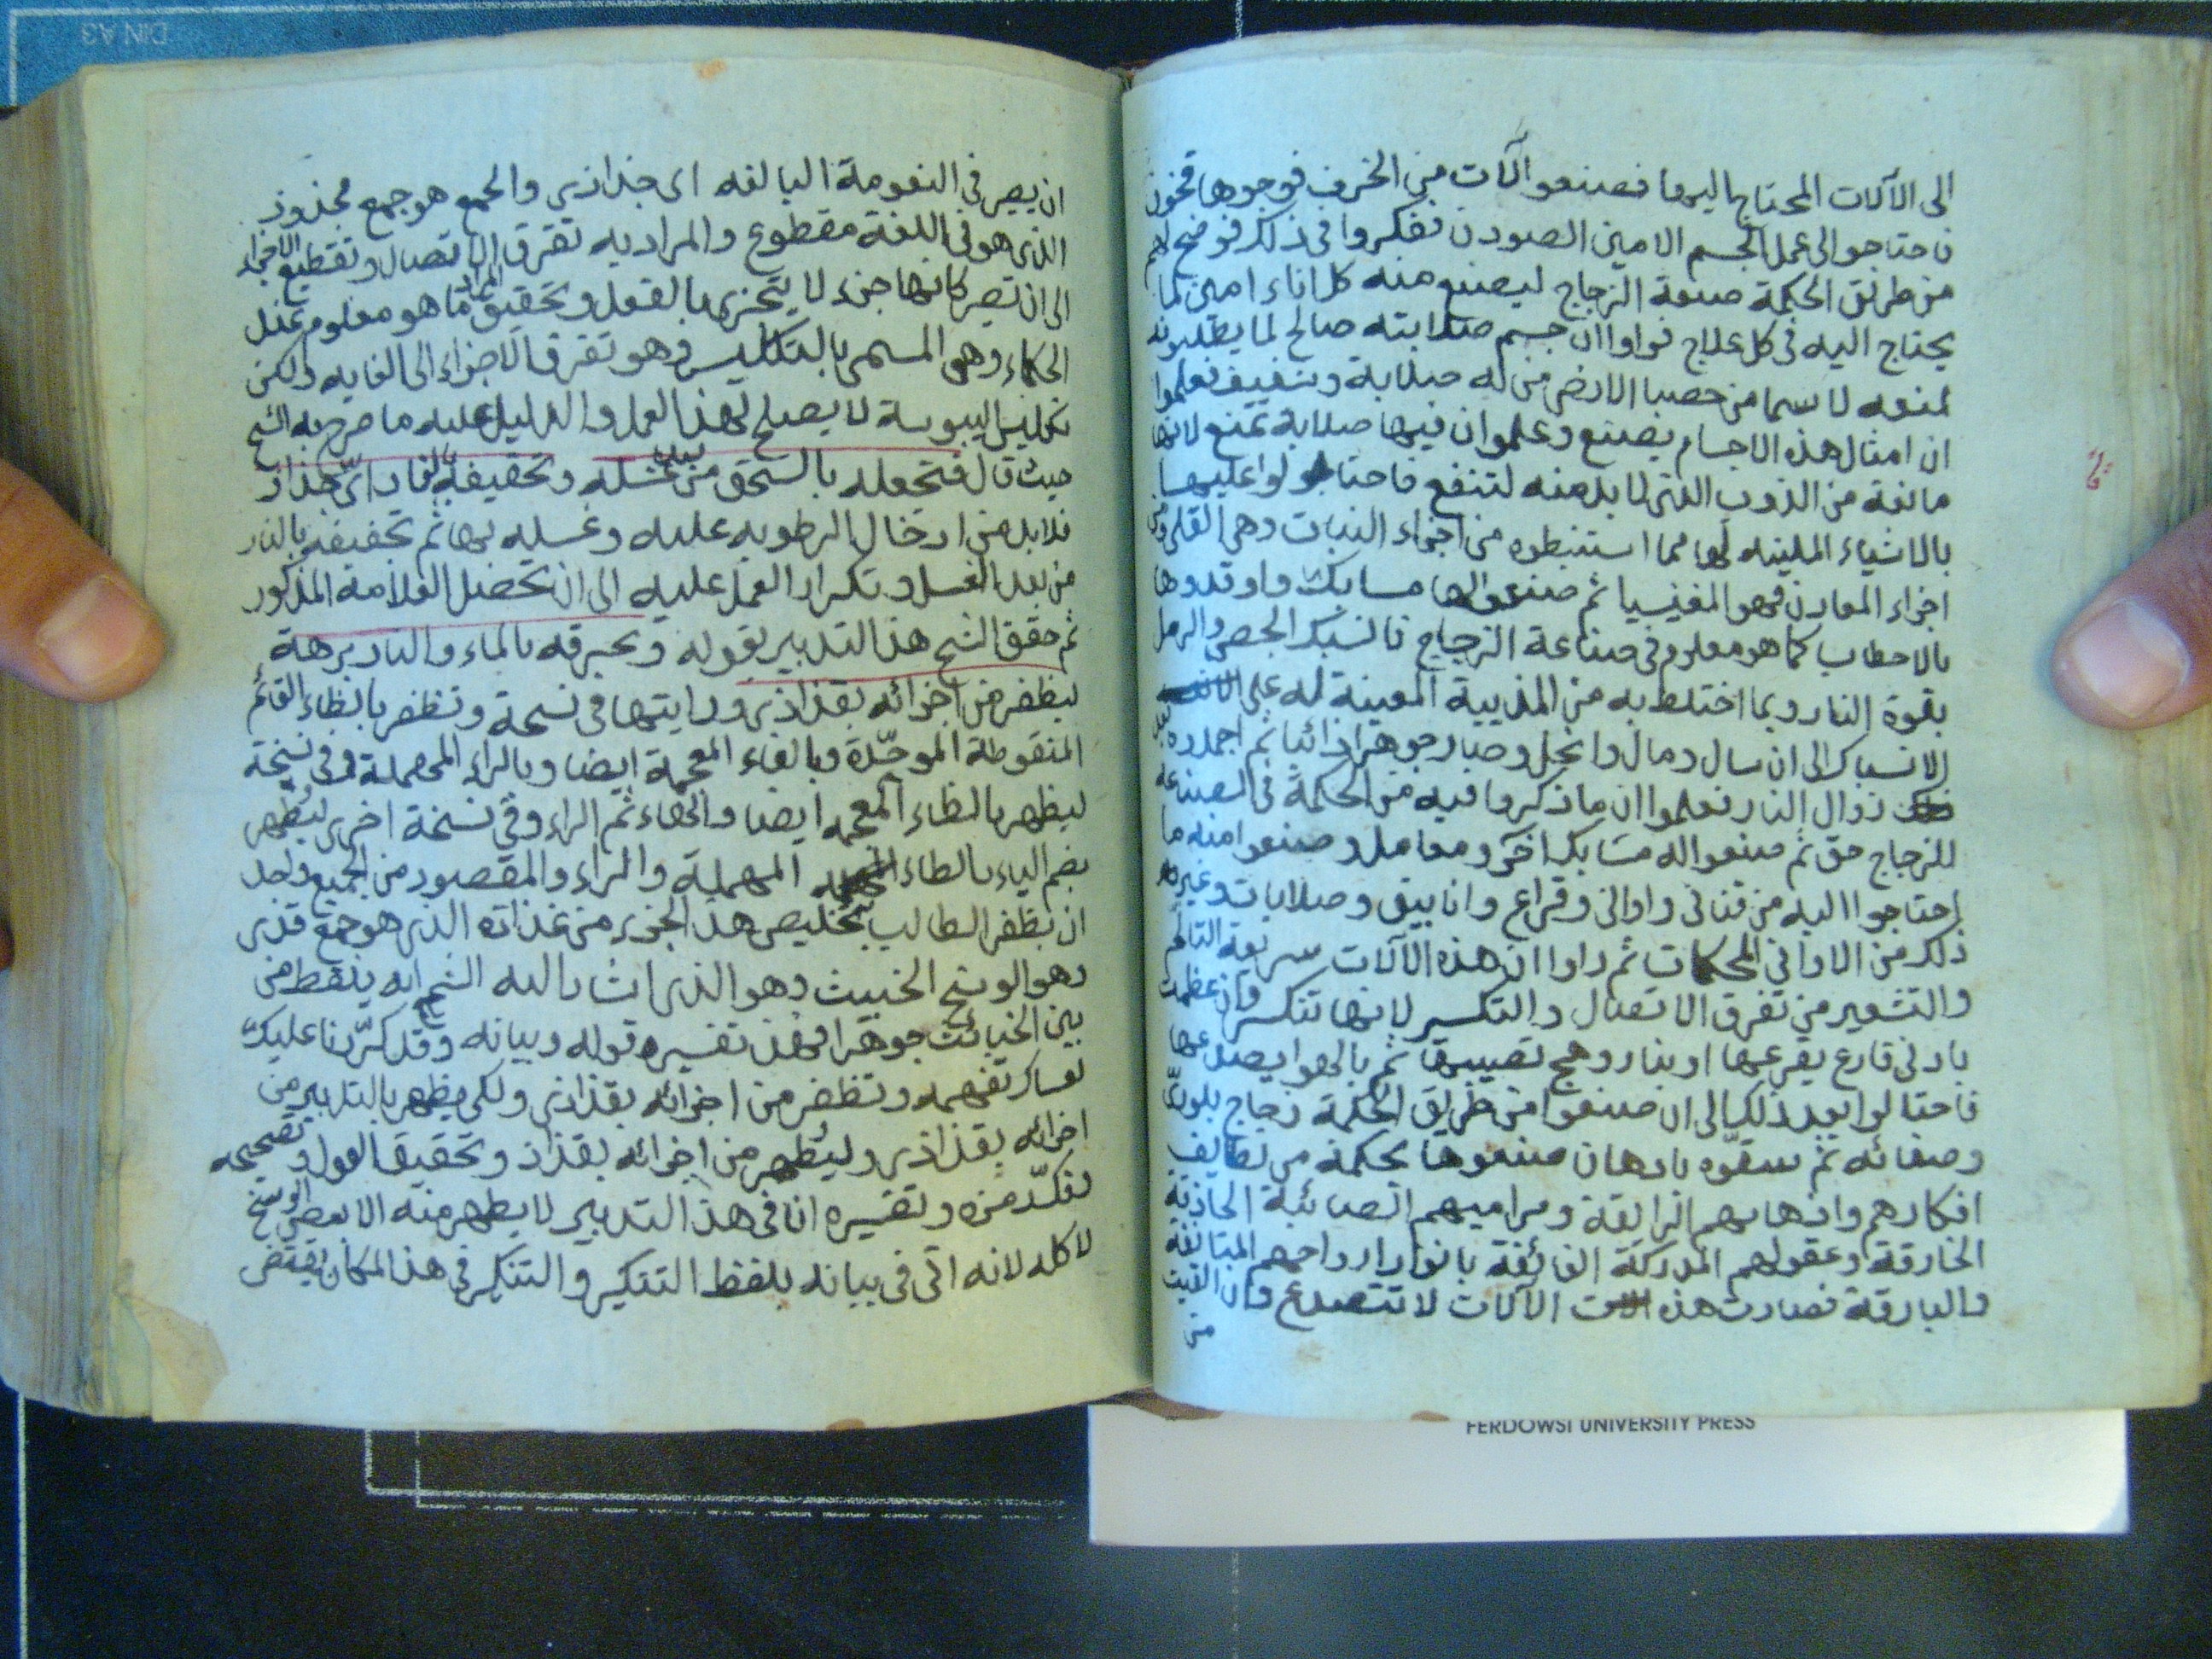 الى الآلات المحتاج اليها فصنعوا آلات من الخزف فوجدوها
فاحتاجوا الى عمل الجسم الامين الصودن تفكروا فى ذلك فوضح لهم
من طريق الحكمة صنعة الزجاج ليصنع منه كل اناء امين لما
يحتاج اليه فى كل علاج فراوا ان جسم صلابته صالح لما يطلبونه
لا سيما من حصبا الارض من له صلابة وشفيف فعلموا
ان امثال هذه الاجسام يصنع وعلموا ان فيها صلابة تمنع لانها
مانعة من الذوب الذى لا بد منه لتنفع فاحتالوا عليها
بالاشياء الملينه لها مما استنبطوه من اجزاء النبات وهى القلى ومن
اجزاء المعادن فهو المغنيسيا ثم صنعوا لها مسابك واوقدوها
بالاحطاب كما هو معلوم فى صناعة الزجاج فانسبك الحصى والرمل
بقوة النار وبما اختلط به من المذيبة المعينة له على
الانسباك الى ان سال ومال وانحل وصار جوهرا ذائبا ثم اجمدوه
زوال النار فعلموا ان ما ذكروا فيه من الحكمة فى الصناعة
للزجاج حق ثم صنعوا له مسابك اخر ومعامل وصنعوا منه ما
احتاجوا اليه من قنانى واوانى وقراع وانابيق وصلايات وغير
ذلك من الاوانى المحكات ثم راوا ان هذه الآلات سريعة التالم
والتشعير من تفرق الاتصال والتكسير لانها تنكسر وان عظمت
بادنى قارع يقرعها او بنار وهج تصيبها ثم بالهوا يصدعها
فاحتالوا بعد ذلك الى ان صنعوا من طريق الحكمة زجاج بلورى
وصفائه ثم سقوه بادهان صنعوها بحكمة من لطائف
افكارهم واذهانهم الرائقة ومراميهم الصائبة الحاذقة
الخارقة وعقولهم المدركة الفائقة بانوار ارواحهم المتالقة
والبارقة فصارت هذه الآلات لا تتصدع وان القيت
من
ان يصير فى النعومة البالغه اى جذاذى والجمع هو جمع مجذوذ
الذى هو فى اللغة مقطوع والمراد به تفرق الاتصال وتقطيع الاجزاء
الى ان تصير كانها جزء لا يتجزى بالفعل وتحقيق ما هو معلوم عند
الحكماء وهو المسمى بالتكليس وهو تفرق الاجزاء الى الغايه ولكن
تكليس اليبوسة لا يصلح لهذا العمل والدليل عليه ما صرح به الشيخ
حيث قال فتجعله بالسحق من غسله وتجفيفه بالنار اى جذاذ
فلا بد من ادخال الرطوبه عليه وغسله بها ثم تجفيفه بالنار
من بعد الغسل وتكرار العمل عليه الى ان تحصل العلامة المذكور
ثم حقق الشيخ هذا التدبير بقوله وتحرقه بالماء والنار برهة
ليظفر من اجزائه بقذاذى ورايتها فى نسخة وتظفر بالظاء القائم
المنقوطة الموحّدة وبالفاء المعجمة ايضا وبالراء المهملة وفى نسخة
ليظهر بالظاء المعجمه ايضا والهاء ثم الراء وفى نسخة اخرى ليُطهر
بضم الياء بالطاء المهملة والراء والمقصود من الجميع واحد
ان يظفر الطالب بتخليص هذا الجزء من غذاته الذى هو جمع قذى
وهو الوسخ الخبيث وهو الذى اشار اليه الشيخ انه يلتقط من
بين الخبائث جوهرا فهذا تفسيره قوله وبيانه وقد كرّرنا عليك
لعساك تفهمه وتظفر من اجزائه بقذاذى ولكى يظهر بالتدبير من
اجزائه بقذاذى وليُطهر من اجزائه بقذاذ وتحقيق القول وتصحيحه
وتفسيره ان فى هذا التدبير لا يطهر منه الا بعض الوسخ
لا كله لانه اتى فى بيانه بلفظ التنكير والتنكير فى هذا المكان يقتضى
FERDOWSI UNIVERSITY PRESS
DIN A3